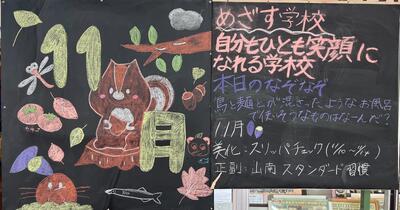 11
月
めざす学校
自分もひとも笑顔に
なれる学校
本日のなぞなぞ
鳥と麺とが混ざったようなお風呂
で使いそうなものはなーんだ?
11月
美化:スリッパチェック
正副:山南スタンダード習慣